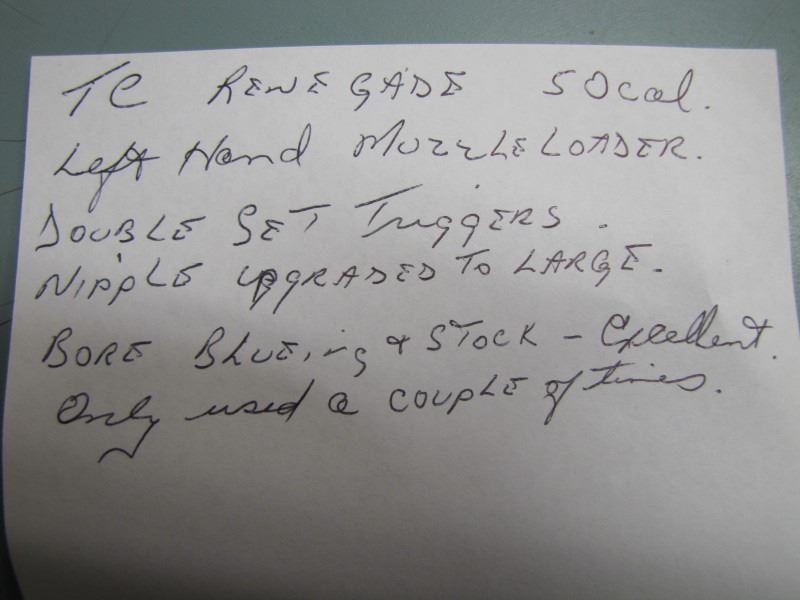 TC RENEGADE 50cal.
Left Hand MUZZLELOADER.
DOUBLE SET TRIggERS.
NIPPLE UPGRADED TO LARGE.
BORE BLUEing & STOCK - Excellent.
Only used a COUPLE of times.